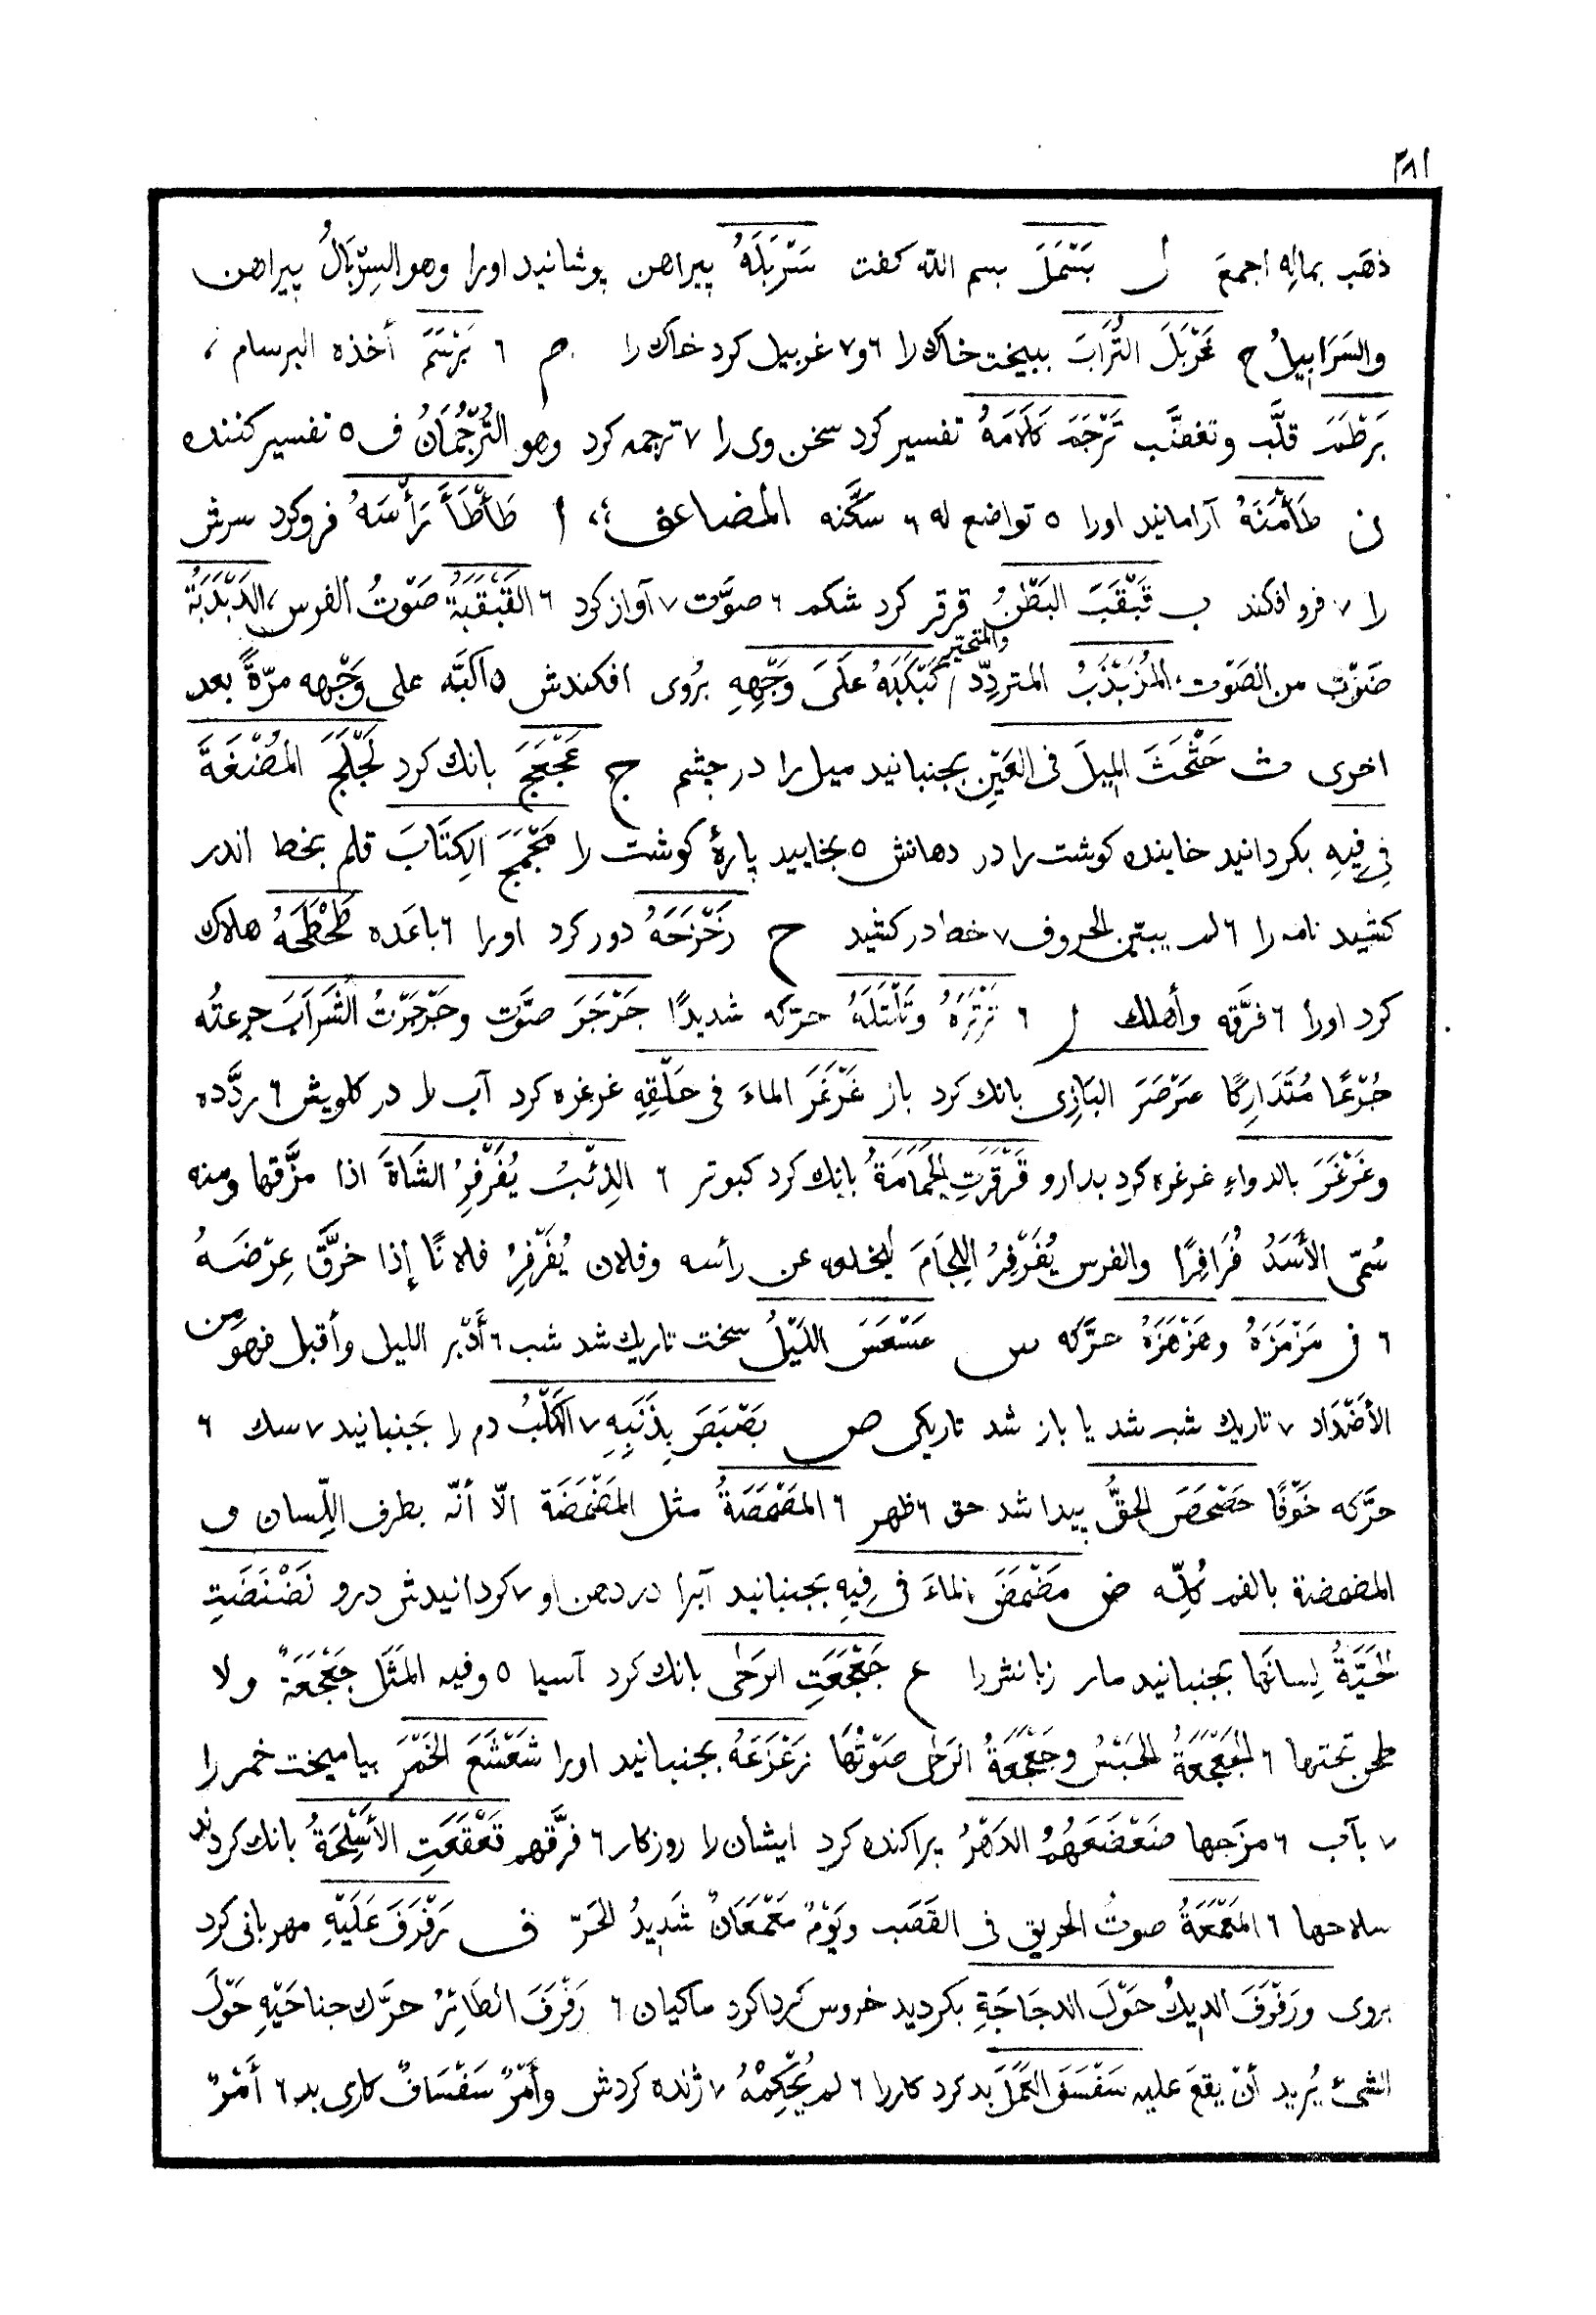 ٢٨١
ذهَب بمالِه اجمعَ ل بَسْمَلَ بسم الله کفت سَرْبَلَهُ پیراهن پوشانید اورا وهو السِرْبَالُ پیراهن
والسَرَابِیلُ ج غَرْبَلَ التُرَابَ ببیخت خاک را ٦ و٧ غربیل کرد خاک را م ٦ بَرْسَمَ أخذه البرسام ،
بَرْطَمَ قلَّب وتغضَّب تَرْجَمَ کَلَامَهُ تفسیر کرد سخن وی را ٧ ترجمه کرد وهو التُرْجُمَانُ ف ٥ تفسیر کننده
ن طَأْمَنَهُ آرامانید اورا ٥ تواضع له ٦ سکَّنه المضاعف ؛، ا طَأْطَأَ رَأْسَهُ فروکرد سرش
را ٧ فرو افکند ب قَبْقَبَ البَطْنُ قرقر کرد شکم ٦ صوَّت ٧ آواز کرد ٦ القَبْقَبَةُ صَوْتُ الفرس ، الدَبْدَبَةُ
ضَرْبٌ من الصَوْت ، المُذَبْذَبُ المتردِّد والمتحیّر / کَبْکَبَهُ عَلَی وَجْهِهِ برُوی افکندش ٥ اکبَّه علی وَجْهه مرّةً بعد
اخری ث حَثْحَثَ المِیلَ فی العَیْنِ بجنبانید میل را در چشم ج عَجْعَجَ بانك کرد لَجْلَجَ المُضْغَةَ
فِی فِیهِ بکردانید خاینده کوشت را در دهانش ٥ بخایید پارهٔ کوشت را مَجْمَجَ الکِتَابَ قلم بخط اندر
کشید نامه را ٦ لم یبیّن الحروف ٧ خط در کشید ح زَحْزَحَهُ دور کرد اورا ٦ باعَده طَحْطَحَهُ هلاک
کرد اورا ٦ فرَّقه وأهلك ر ٦ تَرْتَرَهُ وتَلْتَلَهُ حرّکه شدیدًا جَرْجَرَ صوَّت وجَرْجَرْتُ الشَرَابَ جرعتُه
جُرْعًا مُتَدَارِکًا صَرْصَرَ البَازِی بانك کرد باز غَرْغَرَ الماءَ فی حَلْقِهِ غرغره کرد آب را در کلویش ٦ ردَّده
وغَرْغَرَ بالدواءِ غرغره کرد بدارو قَرْقَرَتِ الحَمَامَةُ بانك کرد کبوتر ٦ الذِئْبُ یُفَرْفِرُ الشَاةَ اذا مزَّقها ومنه
سُمّی الأَسَدُ فُرَافِرًا والفرس یُفَرْفِرُ اللِجَامَ لیخلعه عن رأسه وفلان یُفَرْفِرُ فلانًا إذا خرَّق عِرْضَهُ
٦ ز مَزْمَزَهُ وهَزْهَزَهُ حرَّکه س عَسْعَسَ اللَیْلُ سخت تاریك شد شب ٦ أَدْبر اللیل وأقبل فهو من
الأَضْدَاد ٧ تاریك شب شد یا باز شد تاریکی ص بَصْبَصَ بِذَنَبِهِ ٧ الکَلْبُ دم را بجنبانید ٧ سك ٦
حرَّکه خَوْفًا حَصْحَصَ الحَقُّ پیدا شد حق ٦ ظهر ٦ المَصْمَصَةُ مثل المَضْمَضَة الّا أنّه بطرف اللِّسان و
المضمضة بالفم کُلِّه ض مَضْمَضَ الماءَ فی فِیهِ بجنبانید آبرا در دهن او ٧ کردانیدش درو نَضْنَضَتِ
الحَیَّةُ لِسانَهَا بجنبانید مار زبانش را ع جَعْجَعَتِ الرَحَی بانك کرد آسیا ٥ وفیه المَثَل جَعْجَعَةٌ ولا
طحن تحتها ٦ الجَعْجَعَةُ الحَبْسُ وجَعْجَعَةُ الرَحَی صَوْتُهَا زَعْزَعَهُ بجنبانید اورا شَعْشَعَ الخَمْرَ بیامیخت خمر را
٧ بآب ٦ مزَجها ضَعْضَعَهُمُ الدَهْرُ پراکنده کرد ایشان را روزکار ٦ فرَّقهم قَعْقَعَتِ الأَسْلِحَةُ بانك کردند
سلاحها ٦ المَعْمَعَةُ صوتُ الحریق فی القَصَب ویَوْمٌ مَعْمَعَانٌ شَدِیدُ الحَرّ ف رَفْرَفَ عَلَیْهِ مهربانی کرد
بروی ورَفْرَفَ الدیكُ حَوْلَ الدجَاجَةِ بکردید خروس کرداکرد ماکیان ٦ رَفْرَفَ الطَائِرُ حرَّك جناحَیْهِ حَوْلَ
الشئ یُرید أنْ یقعَ علیه سَفْسَفَ العَمَلَ بد کرد کاررا ٦ لم یُحْکِمْهُ ٧ ژنده کردش وأَمْرٌ سَفْسَافٌ کاری بد ٦ أَمْرٌ